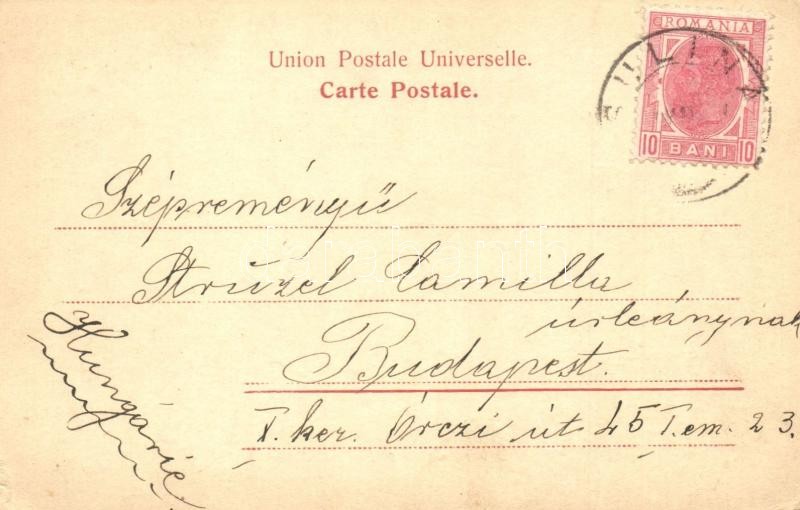 ROMANIA
10 BANI 10
SULINA
Union Postale Universelle.
Carte Postale.
Szépreményű
Strüzel Camilla
úrleánynak
Budapest.
X. ker. Örczi út 45 I. em. 23.
Hungárie